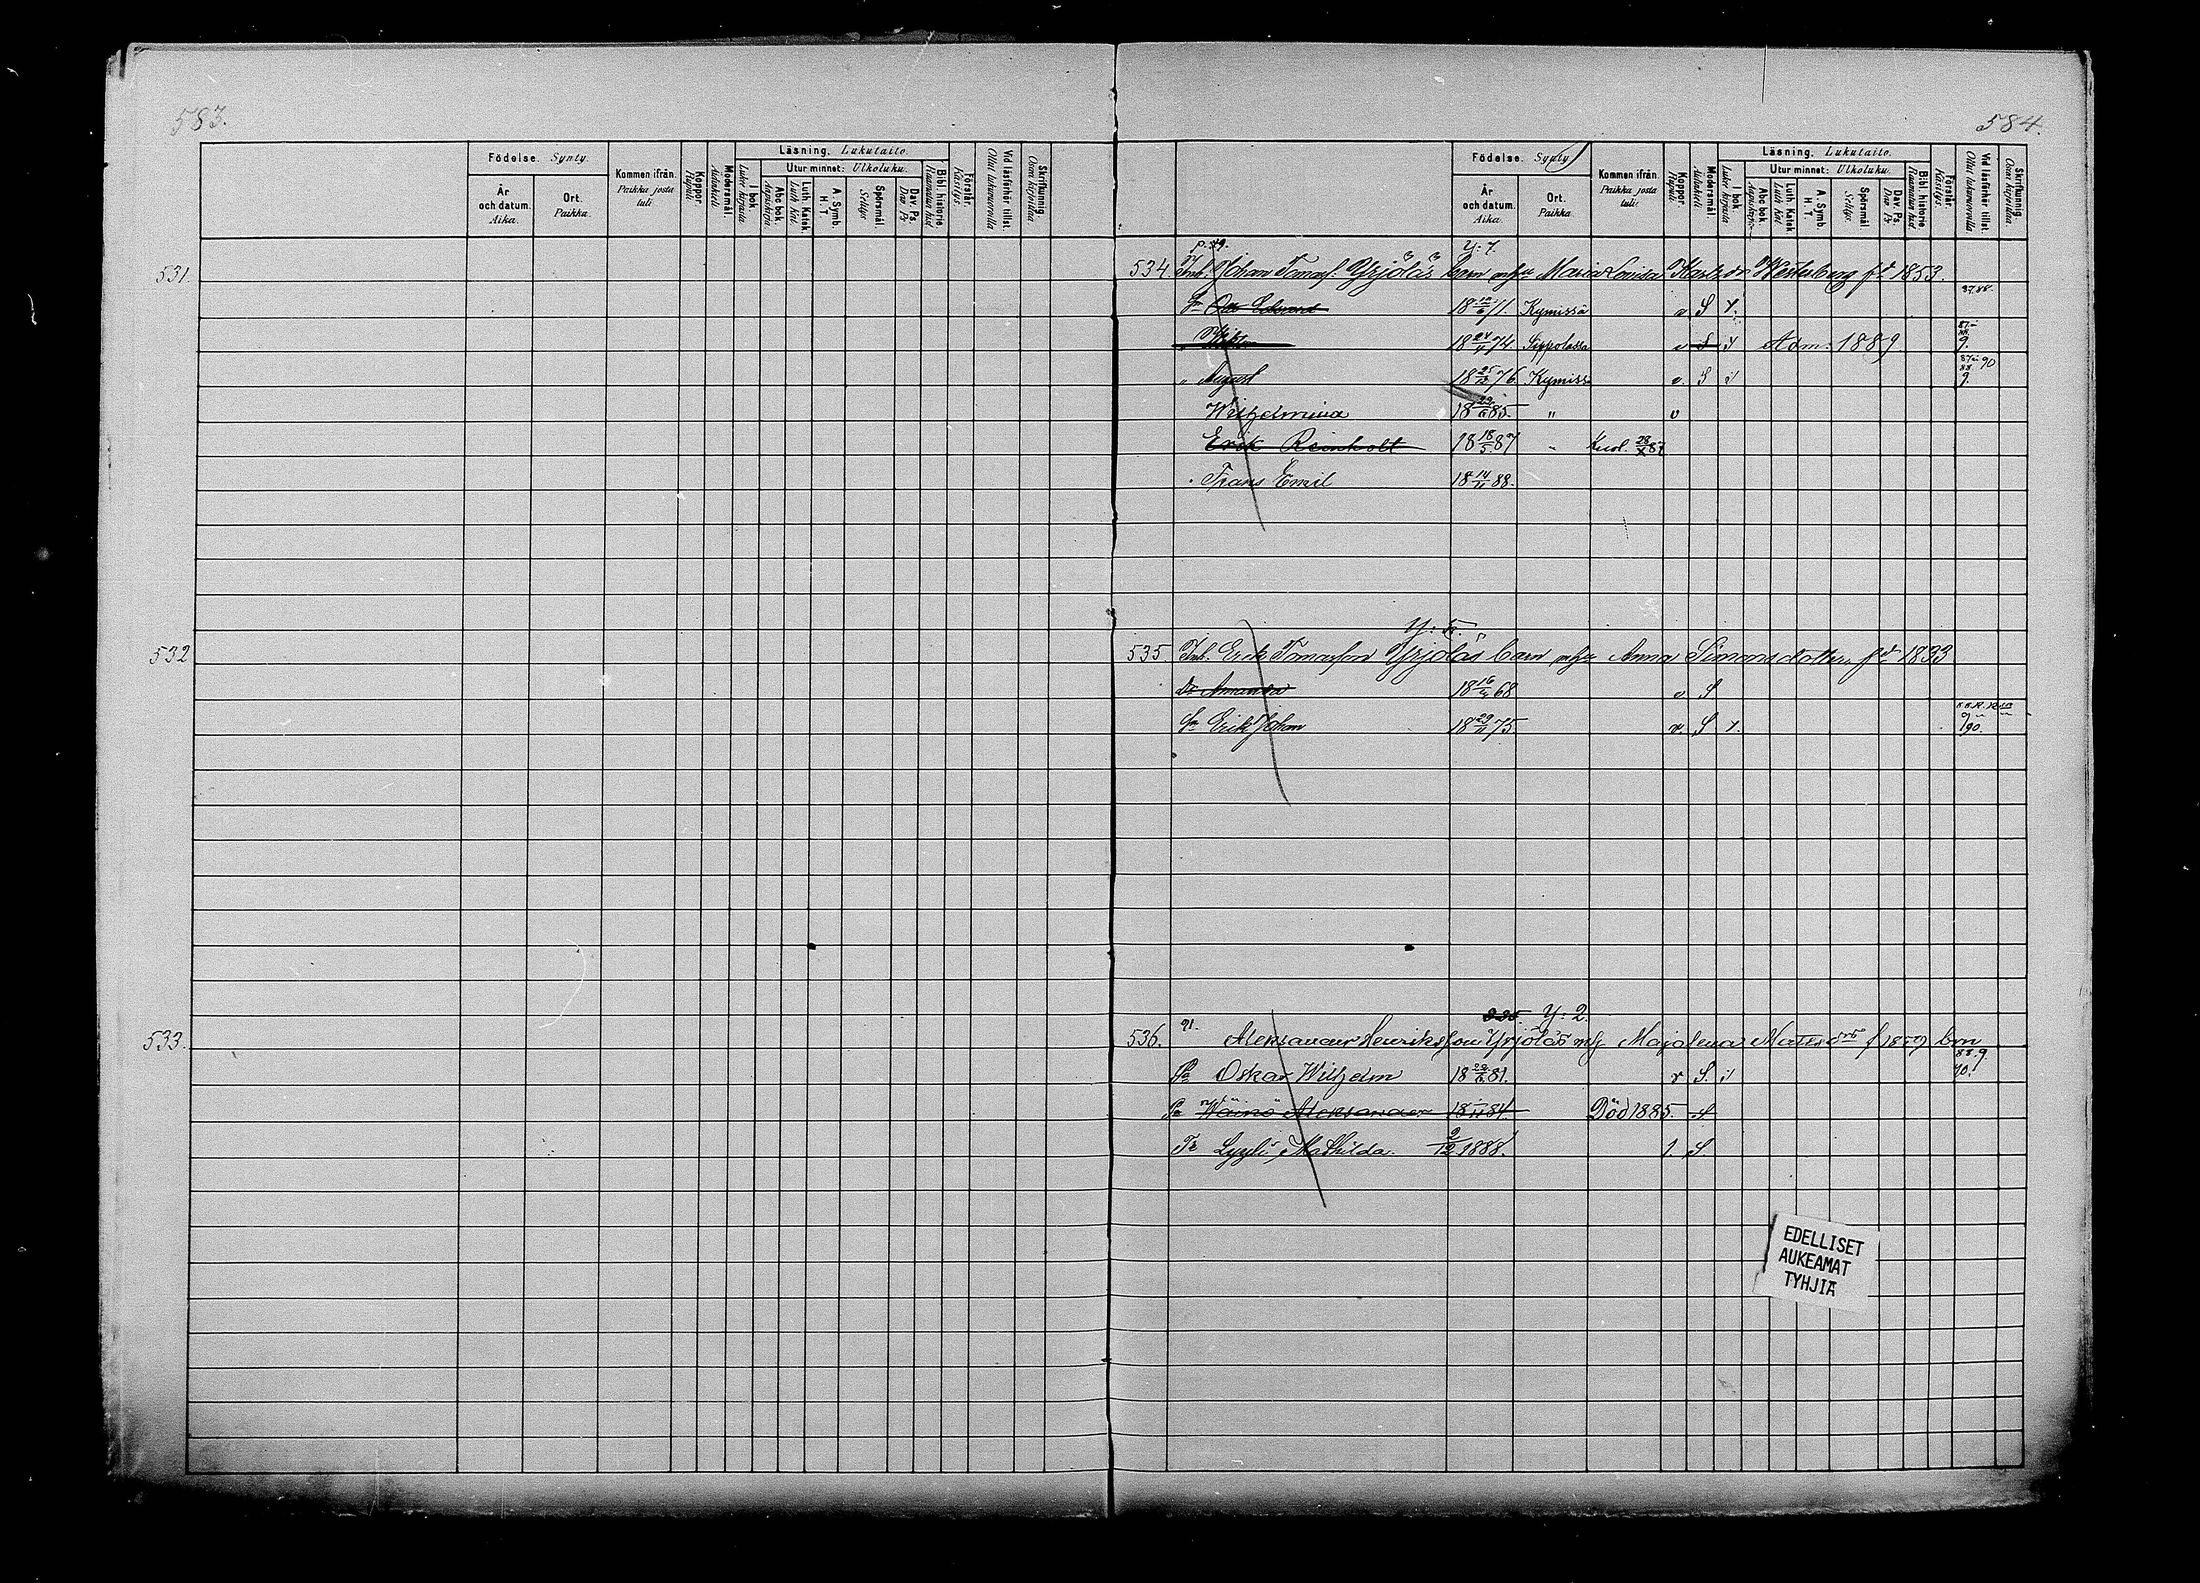 583.
Födelse. Synty.
År och datum. Aika.
Ort. Paikka.
Kommen ifrån. Paikka josta tuli
Koppor. Rupuli.
Modersmål. Äidinkieli.
Läsning. Lukutaito.
I bok. Lukee kirjasta
Utur minnet: Ulkoluku.
Abc bok. Aapiskirja.
Luth. Katek. Luth kat.
A. Symb. H. T.
Spörsmål. Selitys
Dav. Ps. Dav Ps.
Bibl. historie. Raamatun hist
Förstår. Käsitys.
Vid läsförhör tillst. Ollut lukuvuorolla.
Skriftkunnig. Osaa kirjoittaa.
531.
532
533.
584.
Födelse. Synty
År och datum. Aika.
Ort. Paikka
Kommen ifrån. Paikka josta tuli
Koppor. Rupuli.
Modersmål. Äidinkieli.
Läsning. Lukutaito.
I bok. Lukee kirjasta
Utur minnet: Ulkoluku.
Abc bok.
Luth. Katek Luth kat.
A. Symb. H. T.
Spörsmål. Selitys
Dav. Ps. Dav Ps.
Bibl. historie. Raamatun hist
Förstår. Käsitys.
Vid läsförhör tillst. Ollut lukuvuorolla.
Skriftkunnig. Osaa kirjoittaa.
Y: 7.
534. Inh. Johan Tomass. Yrjölas barn m hu Maria Lovisa Karls dr Westerberg fd 1853.
Sn Otto Edvard 18 71. Kymissä v S 87.88.
Viktor 18 24 74 Sippolassa v S Adm: 1889
" August 18 25 76. Kymissä v. S 90
Wilhelmina 18 85. " v
Erik Reinholt 18 18/5 87 " Kuol. 87
Frans Emil 18 14 88.
Y: 5.
535. Inh. Erik Tomasson Yrjölas barn m hu Anna Simonsdotter, fd 1833
Dr Amanda 18 16 68 v S
Sn Erik Johan 18 29/11 75 v. S 90.
Y: 2.
91.
536. Aleksander Henriksson Yrjölas m h Majalena Matts f 1859 barn
Sn Oskar Wilhelm 18 81. v S. 88.9. 90.
Sn Wäinö Aleksander 18 84 Död 1885. S
Tr Lyyli Mathilda. 2/12 1888. 1. S
EDELLISET
AUKEAMAT
TYHJIA